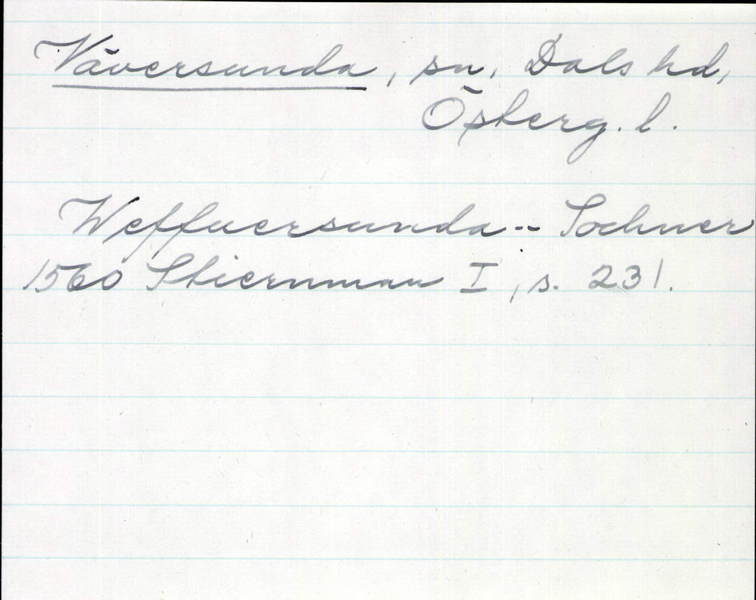 Väversunda, sn, Dals hd,
Österg. l.
Weffuersunda -- Sochner
1560 Stiernman I, s. 231.